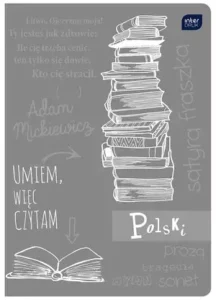 Litwo, Ojczyzno moja!
Ty jesteś jak zdrowie;
Ile cię trzeba cenić,
ten tylko się dowie,
Kto cię stracił.
inter
DRUK
Adam
Mickiewicz
satyra fraszka
UMIEM,
WIĘC
CZYTAM
Polski
proza
tragedia
sonet